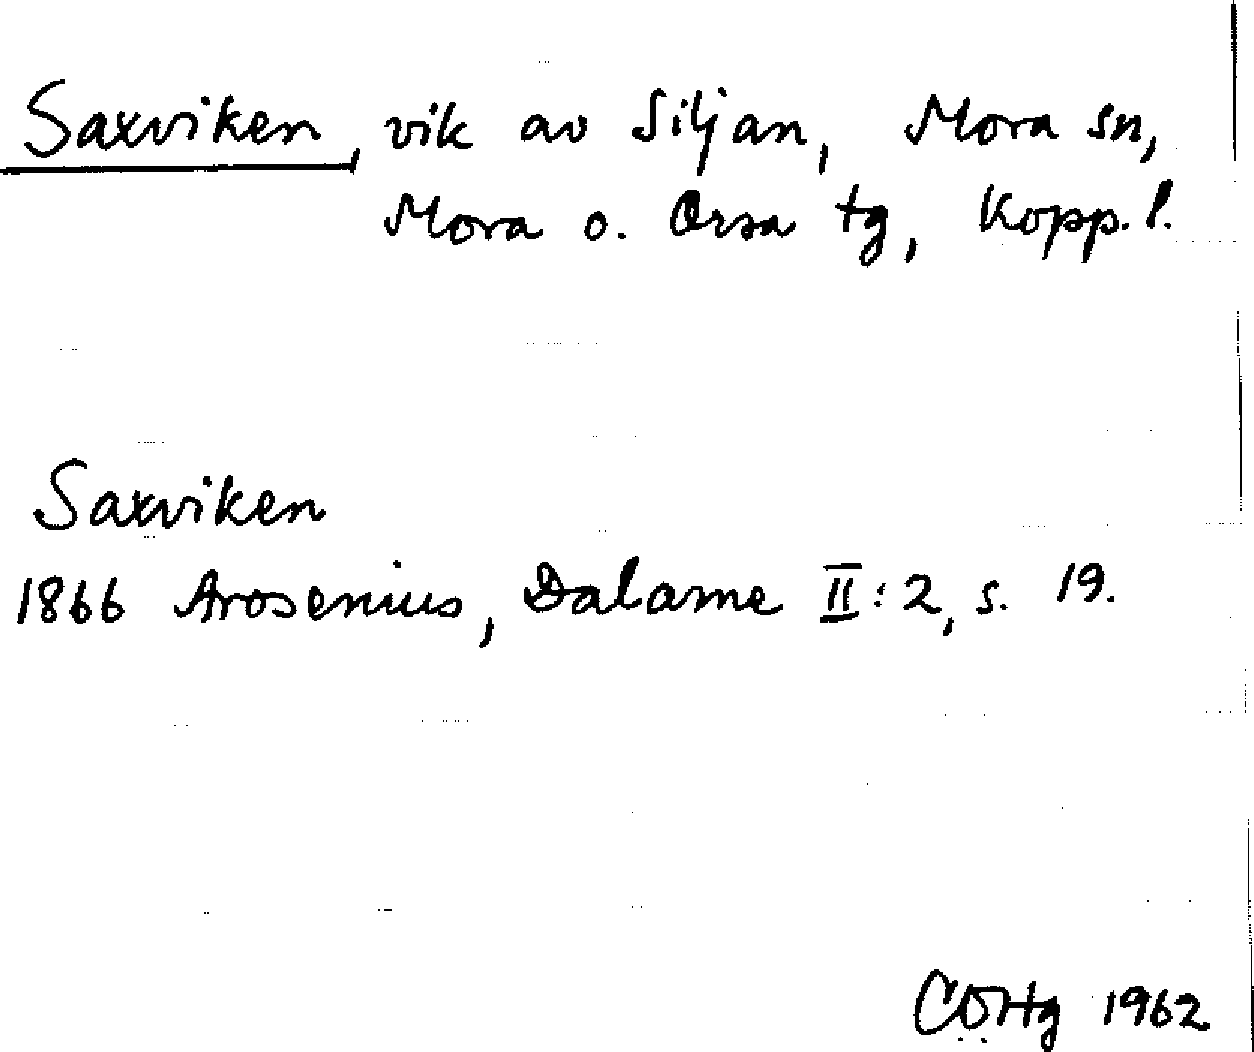 Saxviken, vik av Siljan, Mora sn,
Mora o. Orsa tg, Kopp. l.
Saxviken
1866 Arosenius, Dalarne II:2, s. 19.
1962